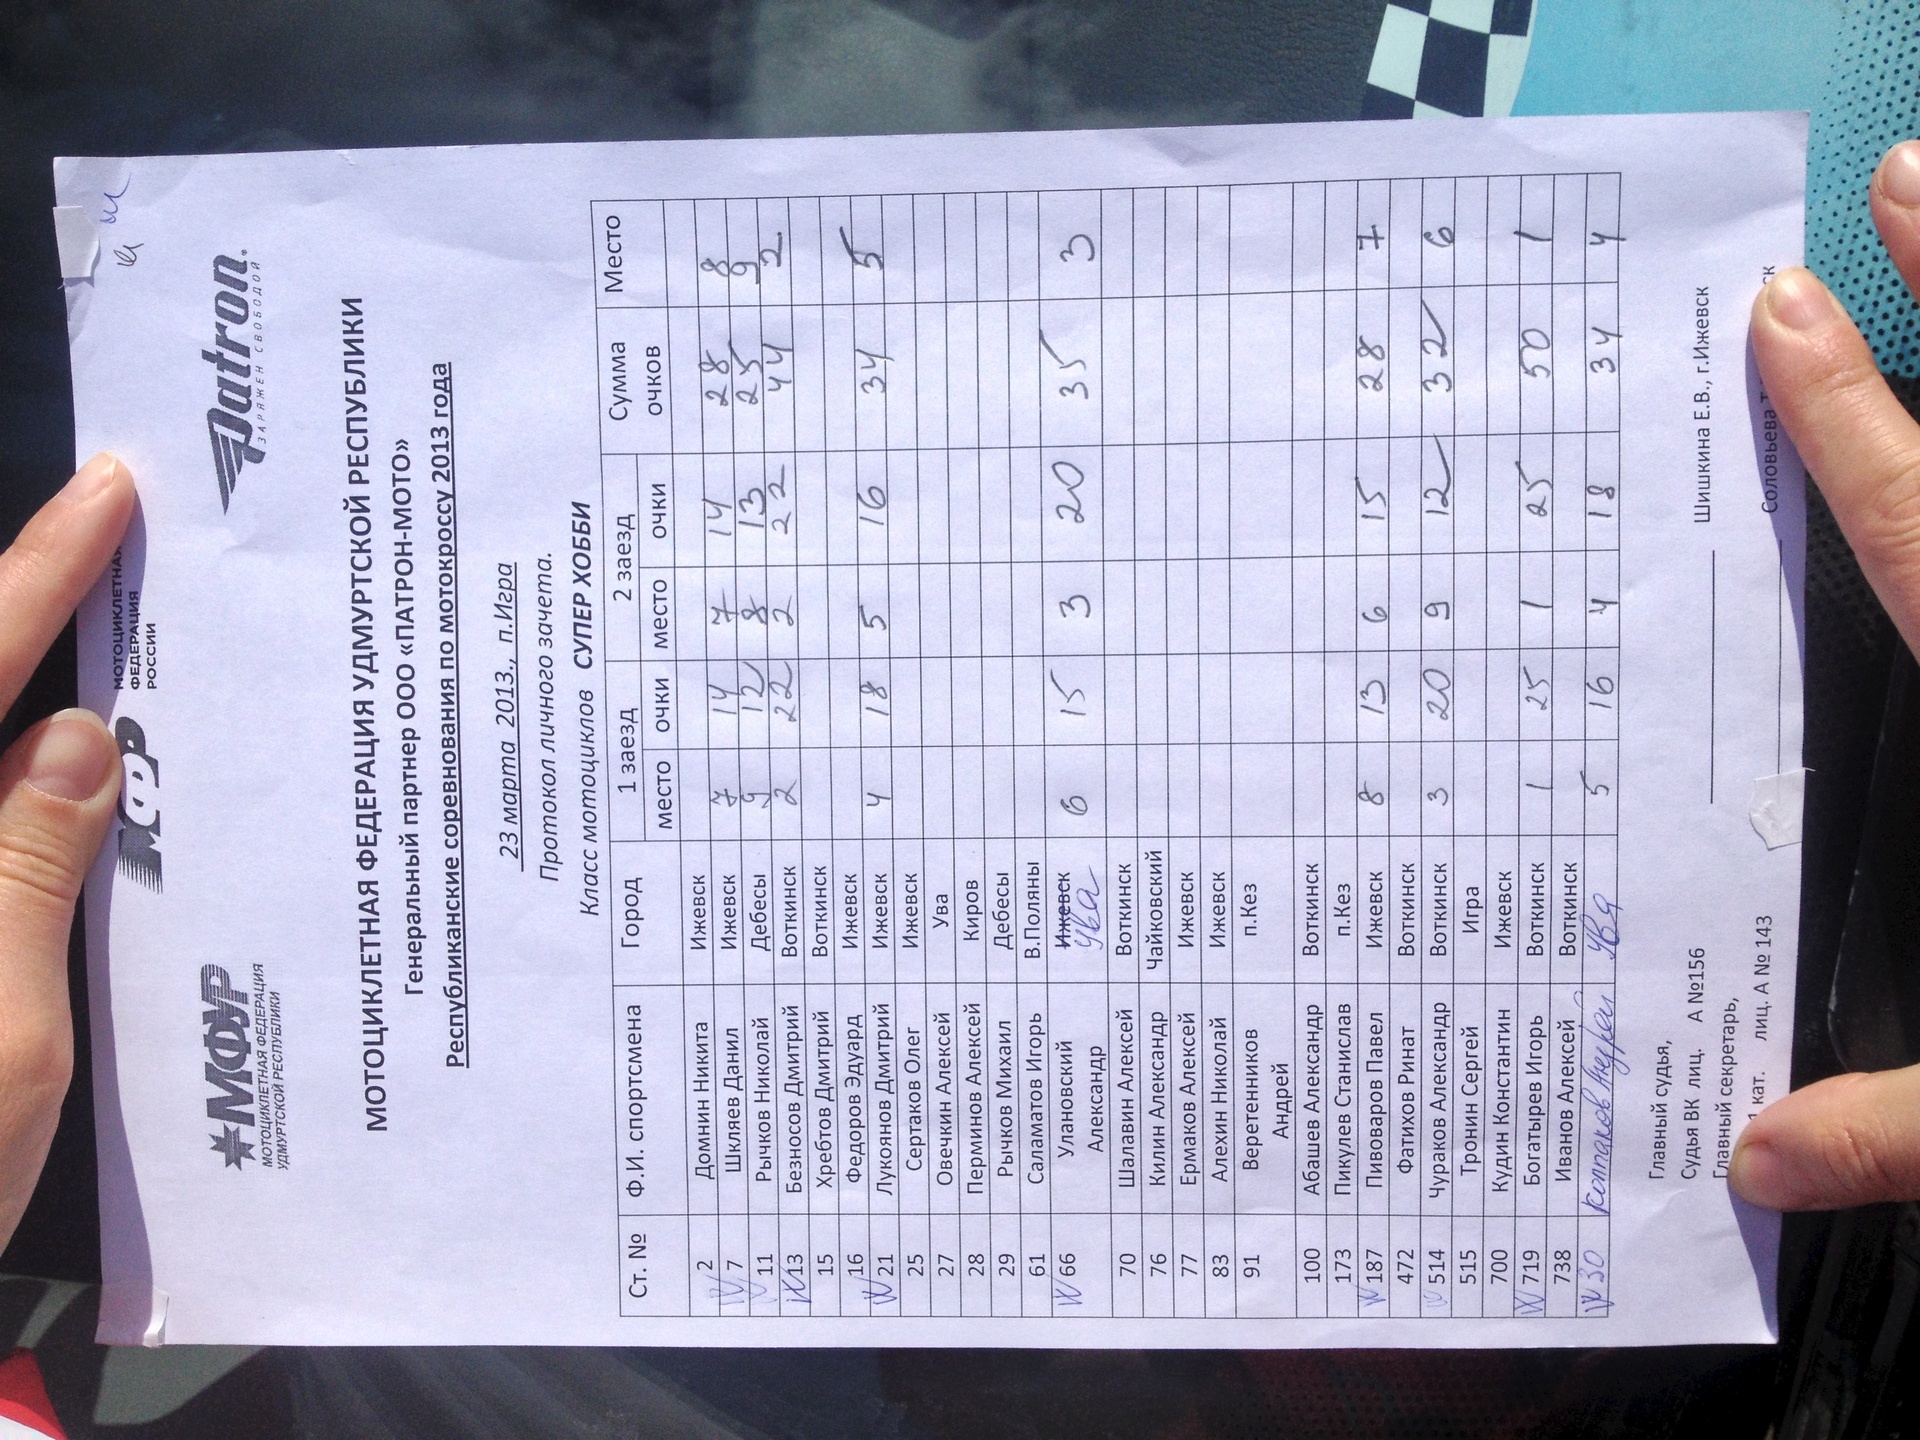 МФУР
МОТОЦИКЛЕТНАЯ ФЕДЕРАЦИЯ
УДМУРТСКОЙ РЕСПУБЛИКИ
МФР
МОТОЦИКЛЕТНАЯ
ФЕДЕРАЦИЯ
РОССИИ
Patron.
ЗАРЯЖЕН СВОБОДОЙ
МОТОЦИКЛЕТНАЯ ФЕДЕРАЦИЯ УДМУРТСКОЙ РЕСПУБЛИКИ
Генеральный партнер ООО «ПАТРОН-МОТО»
Республиканские соревнования по мотокроссу 2013 года
23 марта 2013., п.Игра
Протокол личного зачета.
Класс мотоциклов СУПЕР ХОББИ
Ст. № Ф.И. спортсмена Город 1 заезд 2 заезд Сумма очков Место
место очки место очки
2 Домнин Никита Ижевск
7 Шкляев Данил Ижевск 7 14 7 14 28 8
11 Рычков Николай Дебесы 9 12 8 13 25 9
13 Безносов Дмитрий Воткинск 2 22 2 22 44 2
15 Хребтов Дмитрий Воткинск
16 Федоров Эдуард Ижевск
21 Лукоянов Дмитрий Ижевск 4 18 5 16 34 5
25 Сертаков Олег Ижевск
27 Овечкин Алексей Ува
28 Перминов Алексей Киров
29 Рычков Михаил Дебесы
61 Саламатов Игорь В.Поляны
66 Улановский Александр Ижевск Ува 6 15 3 20 35 3
70 Шалавин Алексей Воткинск
76 Килин Александр Чайковский
77 Ермаков Алексей Ижевск
83 Алехин Николай Ижевск
91 Веретенников Андрей п.Кез
100 Абашев Александр Воткинск
173 Пикулев Станислав п.Кез
187 Пивоваров Павел Ижевск 8 13 6 15 28 7
472 Фатихов Ринат Воткинск
514 Чураков Александр Воткинск 3 20 9 12 32 6
515 Тронин Сергей Игра
700 Кудин Константин Ижевск
719 Богатырев Игорь Воткинск 1 25 1 25 50 1
738 Иванов Алексей Воткинск
30 Андрей Ува 5 16 4 18 34 4
Главный судья,
Судья ВК лиц. А №156 Шишкина Е.В., г.Ижевск
Главный секретарь,
1 кат. лиц. А № 143 Соловьева